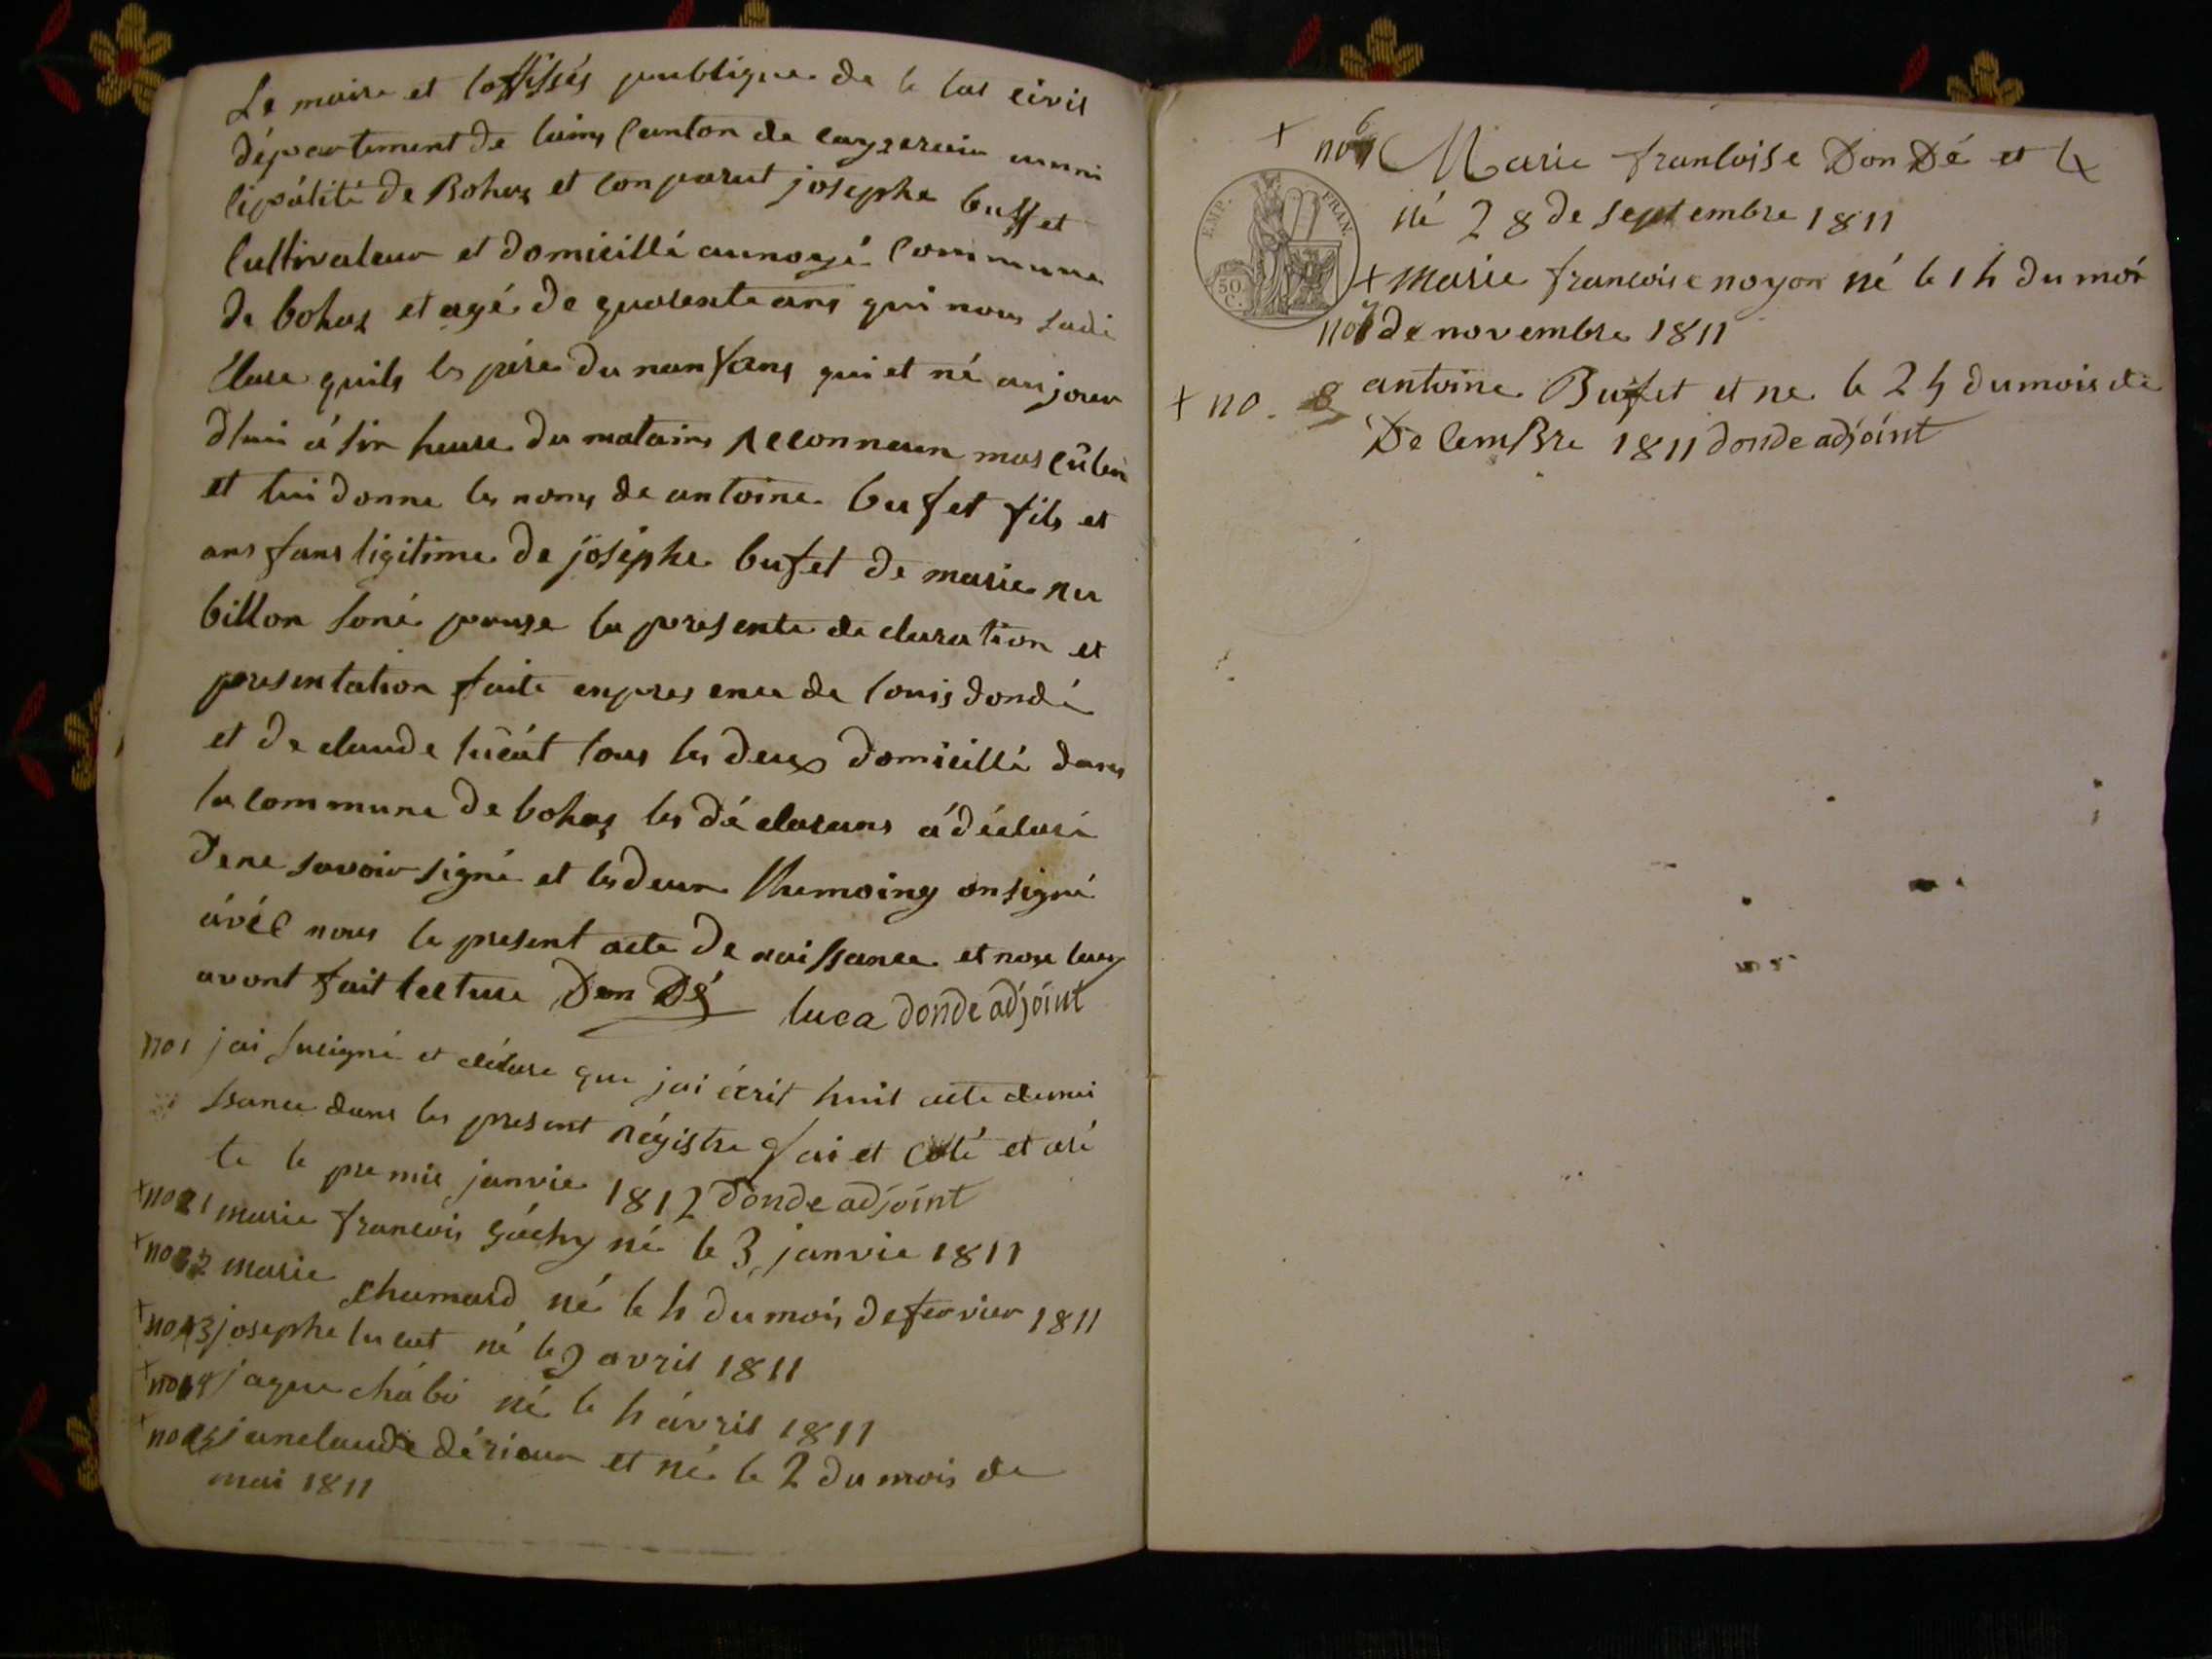 Le maire et loffissés publique de le tat civil
département de lains Canton de ceyzeriein munni
lipálité de Bohas et Conparut josephe buffet
Cultivateur et domicillé au noyé Commune
de bohas et agé de quarente ans qui nous sadé
Clare quils le pére du nanfans qui et né au jour
dhui á sin heure du matains reconneun mas culin
et lui donne les noms de antoine bufet fils et
ans fans ligitime de joséphe bufet de marie nu
billon soné pouse la presente de claration et
presentation faite enpres ence de louis dondé
et de claude lucát tous les deux domicillé dans
la commune de bohas les déclarans á déclaré
dene savoir signé et les deux themoins on signé
ávéc nous le present acte de naissance et nous leur
avont fait lecture Don Dé luca donde adjoint
no1 jai susigné et déclare que jai écrit huit acte denai
ssance dans les present régistre fai et coté et aré
te le premie janvie 1812 donde adjoint
+ no 1 marie francois Gáchy né le 3 janvie 1811
+ no 2 marie chumard né le h du mois de fervier 1811
+ no 3 josephe lucut né le 9 avril 1811
+ no 4 jaque chábó né le h ávril 1811
+ no 5 janclaude dérieur et né le 2 du mois de
mai 1811
+ no 6 Marie francoise Don Dé et
né 28 de septembre 1811
EMP. FRAN.
50 C.
+ marie francoise noyon né le 1h du moi
no 7 de novembre 1811
+ no. 8 antoine Bufet et ne le 25 du mois de
De CemBre 1811 donde adjoint